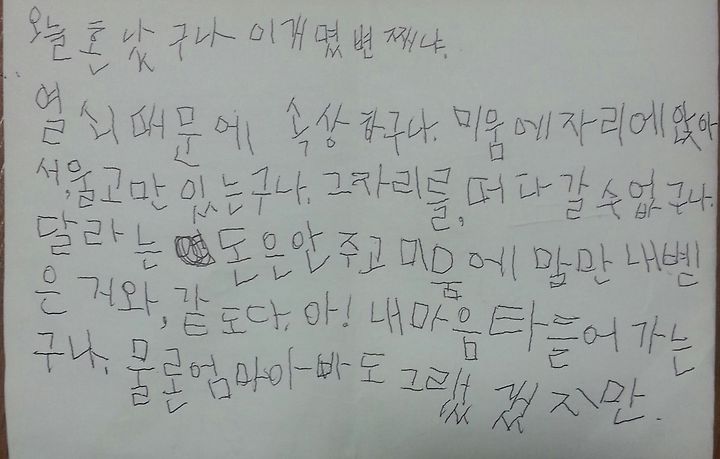 오늘 혼 났 구나 이게 몇 번 째냐.
열 심 때문에 속상 하구나. 미움에자리에 앉아
서,울고만 있는구나. 그자리를, 떠 다 갈 수 없 구나.
달라는 돈은안 주고 미움에 말만 내뱉
은 거와, 같도다. 아! 내마음 타들어 가는
구나. 물론엄마아빠도 그랬 겠 지만.